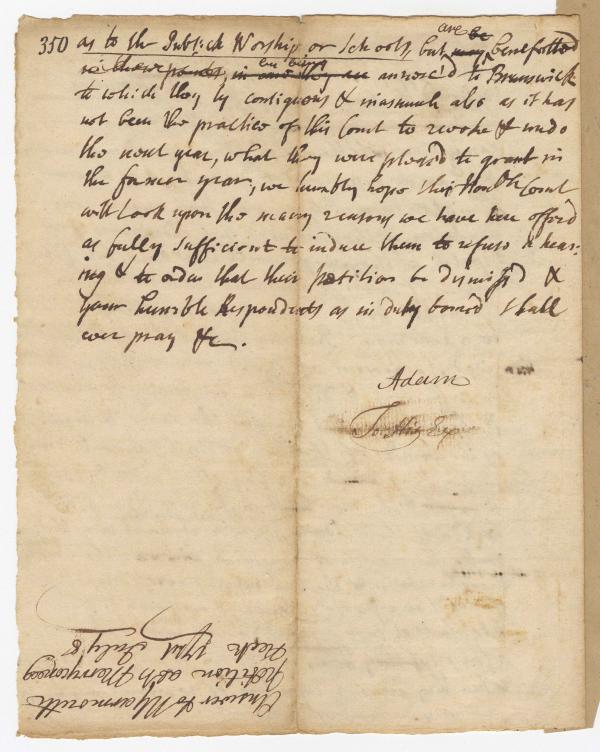 350 as to the Publick Worship or Schools, but may are be benefitted
in these points, in are they are being annex'd to Brunswick
to which they ly contiguous & inasmuch also as it has
not been the practice of this Court to revoke & undo
the next year, what they were pleas'd to grant in
the former year, we humbly hope this Hon.ble Court
will Look upon the many reasons we have here offer'd
as fully sufficient to induce them to refuse a hear-
ing & to order that their petition be dismiss'd &
your humble Respondents as in duty bound shall
ever pray &c.
Adam
Answer to N Yarmouth
Petition abt Merryconeag
Neck 1741 July 8